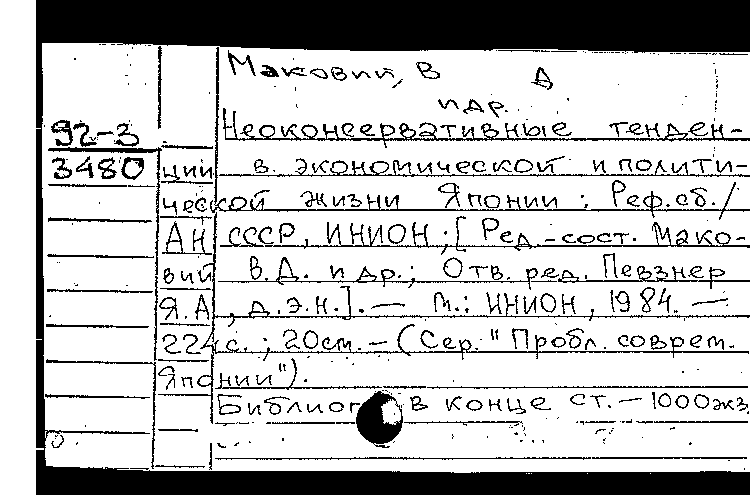 Маковий, В Д
и др.
92-3 Неоконсервативные тенден-
3480 ции в экономической и полити-
ческой жизни Японии : Реф.сб./
АН СССР, ИНИОН ; [Ред.-сост. Мако-
вий В.Д. и др.; Отв. ред. Певзнер
Я.А., д.э.н.]. — М.: ИНИОН, 1984. —
224с. ; 20см. — (Сер. "Пробл. соврем.
Японии").
в конце ст. — 1000экз.